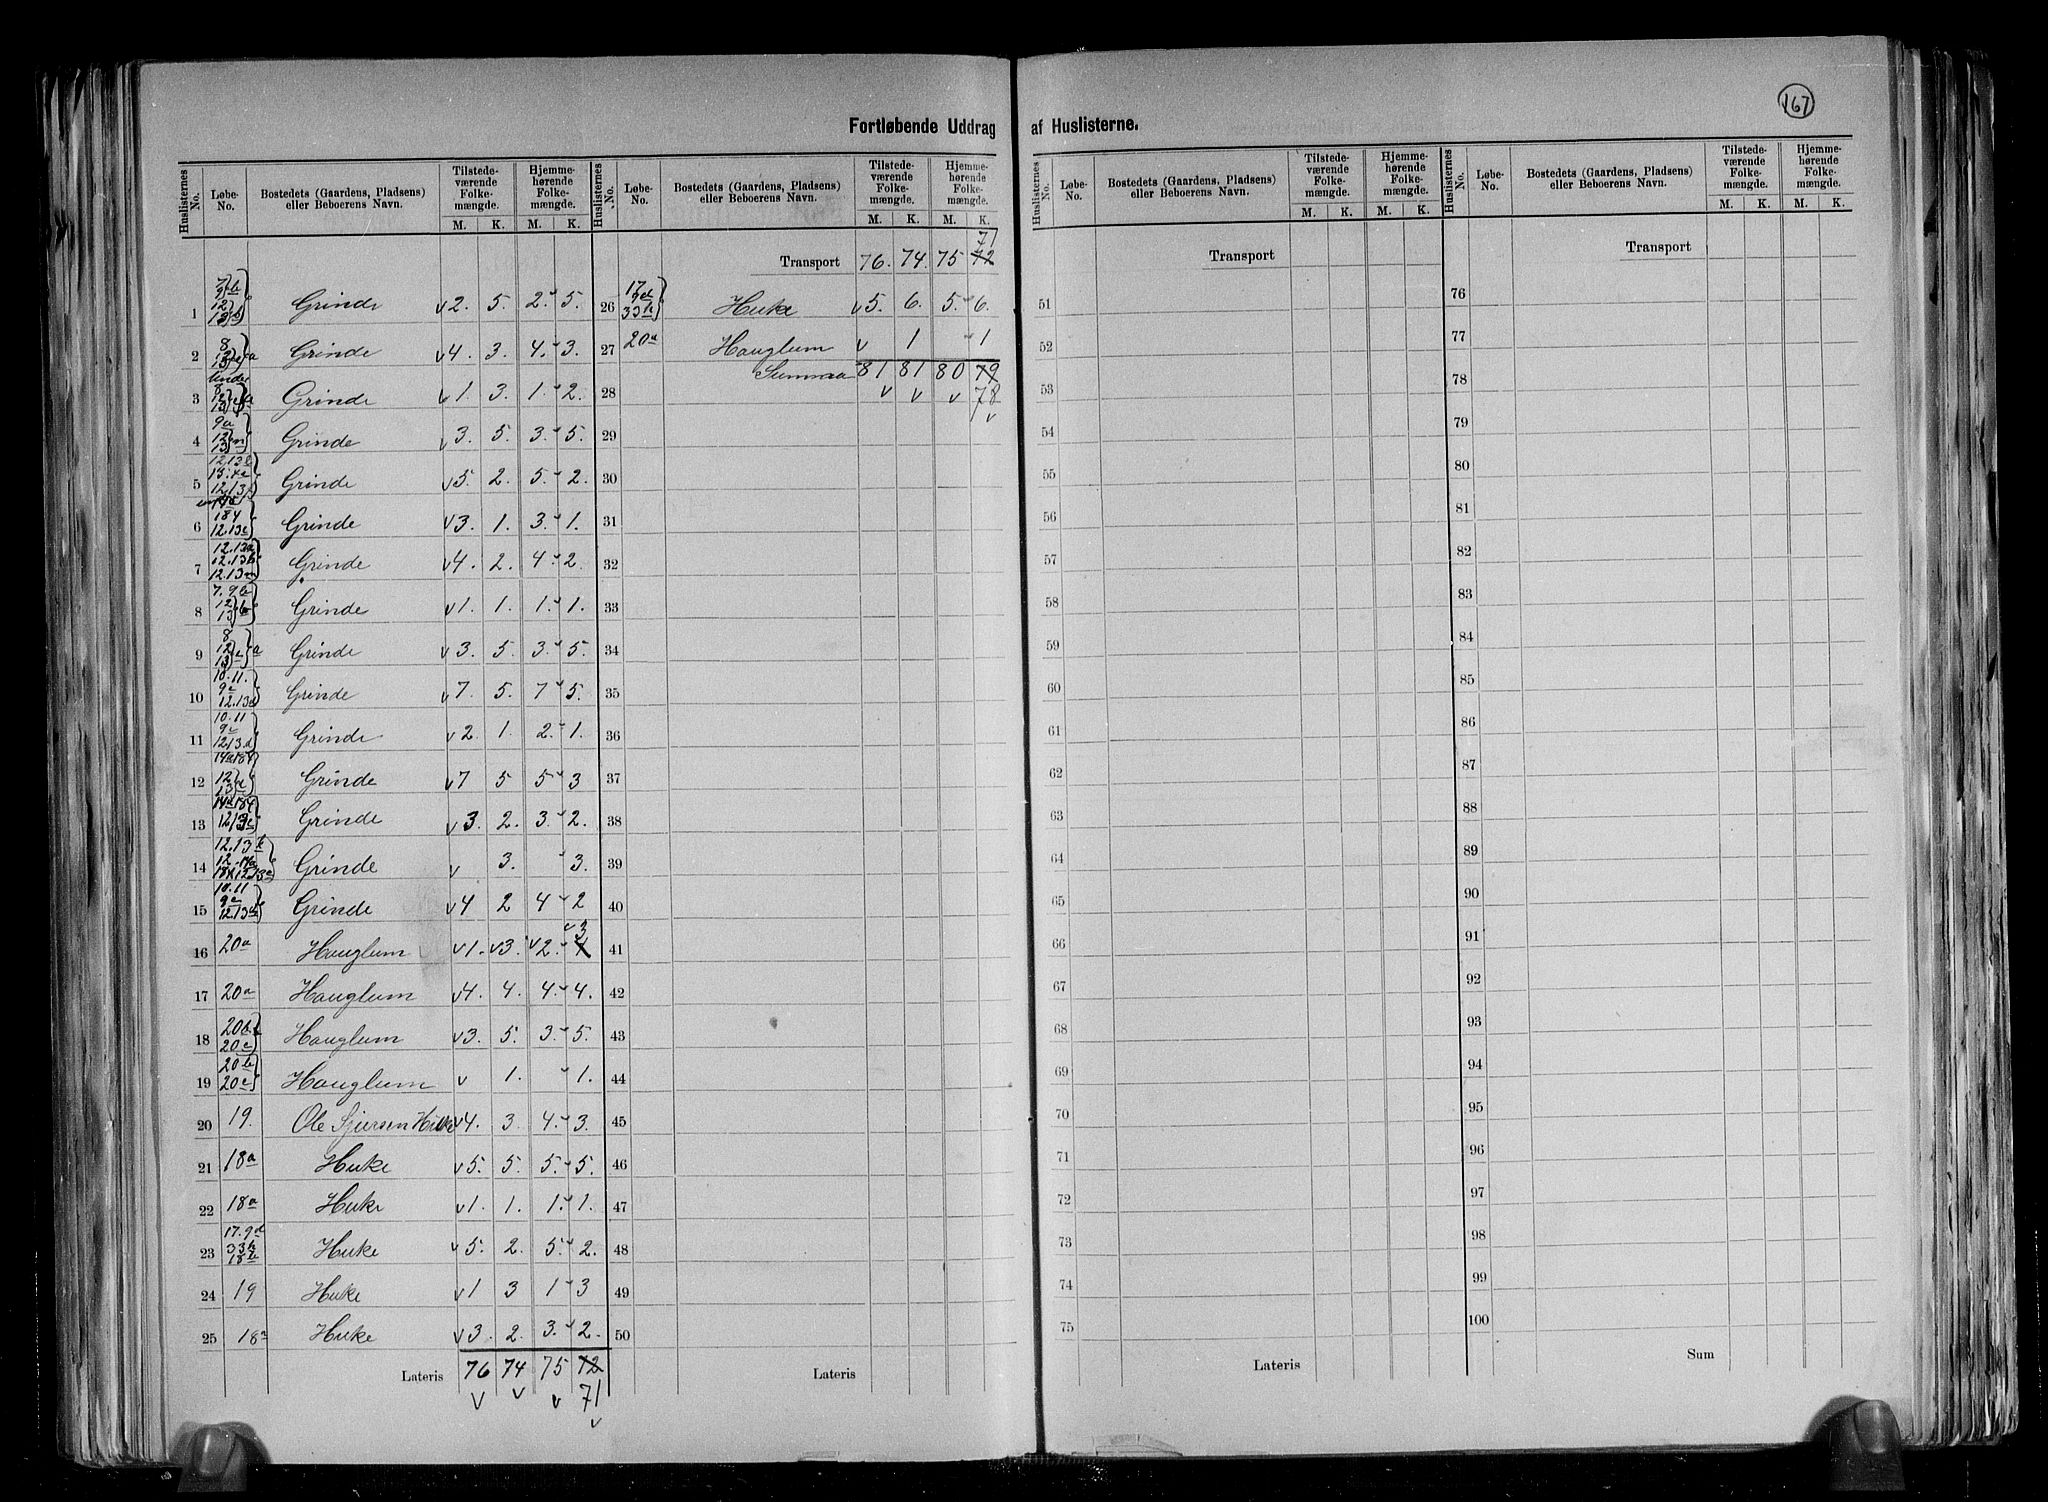 167
Fortløbende Uddrag af Huslisterne.
Huslisternes No. Løbe-No. Bostedets (Gaardens, Pladsens) eller Beboerens Navn. Tilstede-værende Folke-mængde. M. K. Hjemme-hørende Folke-mængde. M. K.
1 Grinde v2. 5. 2. 5.
2 Grinde v4. 3. 4. 3.
3 Grinde v1. 3. 1. 2.
4 9a 12 13 m Grinde v3. 5. 3. 5.
5 Grinde v5. 2. 5. 2.
6 184 12.13c Grinde v3. 1. 3. 1.
7 12.13a 12.13b 12.13m Grinde v4. 2. 4. 2.
8 7.9b 12 13 b Grinde v1. 1. 1. 1.
9 8 12 13 e a Grinde v3. 5. 3. 5.
10 10.11. 9c 12.13d Grinde v7. 5. 7. 5.
11 10.11 9c 12.13d Grinde v2. 1. 2. 1.
12 14a184 12 13 Grinde v7 5 5 3
13 14a184 12.13c Grinde v3. 2. 3. 2.
14 12.13k Grinde v 3. 3.
15 10.11 9c 12.13d Grinde v4 2 4 2
16 20a Hauglum v1. v3. v2. 4 v3
17 20a Hauglum v4. 4. 4. 4.
18 20b 20c Hauglum v3. 5. 3. 5.
19 20b 20c Hauglum v 1. 1.
20 19. Ole Sjursen Huke v4. 3 4. 3.
21 18a Huke v5. 5. 5. 5.
22 18a Huke v1. 1. 1. 1.
23 17.9d 33k 18b Huke v5. 2. 5. 2.
24 19 Huke v1 3 1 3
25 18a Huke v3. 2. 3. 2.
Lateris 76 74 75 72
v v v 71
v
Huslisternes No. Løbe-No. Bostedets (Gaardens, Pladsens) eller Beboerens Navn. Tilstede-værende Folke-mængde. M. K. Hjemme-hørende Folke-mængde. M. K.
71
Transport 76. 74. 75 72
26 17. 9d 33k Huke v5. 6. 5. 6.
27 20a Hauglum v 1 1
Summa 81 81 80 79
28 v v v 78
v
29
30
31
32
33
34
35
36
37
38
39
40
41
42
43
44
45
46
47
48
49
50
Lateris
Huslisternes No. Løbe-No. Bostedets (Gaardens, Pladsens) eller Beboerens Navn. Tilstede-værende Folke-mængde. M. K. Hjemme-hørende Folke-mængde. M. K.
Transport
51
52
53
54
55
56
57
58
59
60
61
62
63
64
65
66
67
68
69
70
71
72
73
74
75
Lateris
Huslisternes No. Løbe-No. Bostedets (Gaardens, Pladsens) eller Beboerens Navn. Tilstede-værende Folke-mængde. M. K. Hjemme-hørende Folke-mængde. M. K.
Transport
76
77
78
79
80
81
82
83
84
85
86
87
88
89
90
91
92
93
94
95
96
97
98
99
100
Sum